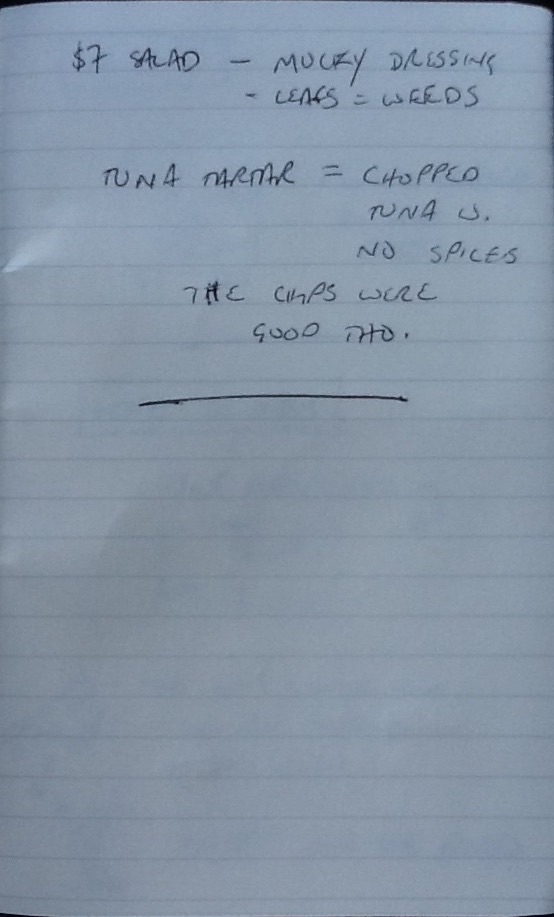 $7 SALAD - MUCKY DRESSING
- LEAFS = WEEDS
TUNA TARTAR = CHOPPED
TUNA W.
NO SPICES
THE CHIPS WERE
GOOD THO.